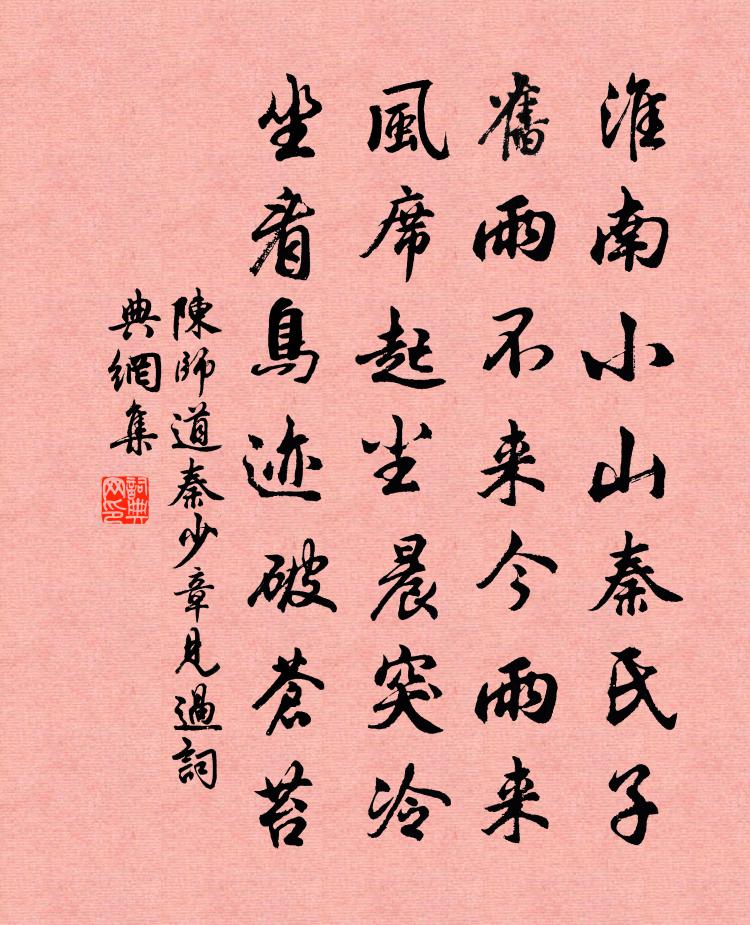 淮南小山秦氏子
舊雨不来今雨来
風席起坐晨突冷
坐看鳥迹破蒼苔
陳師道秦少章見過詞
典網集
詞典網印